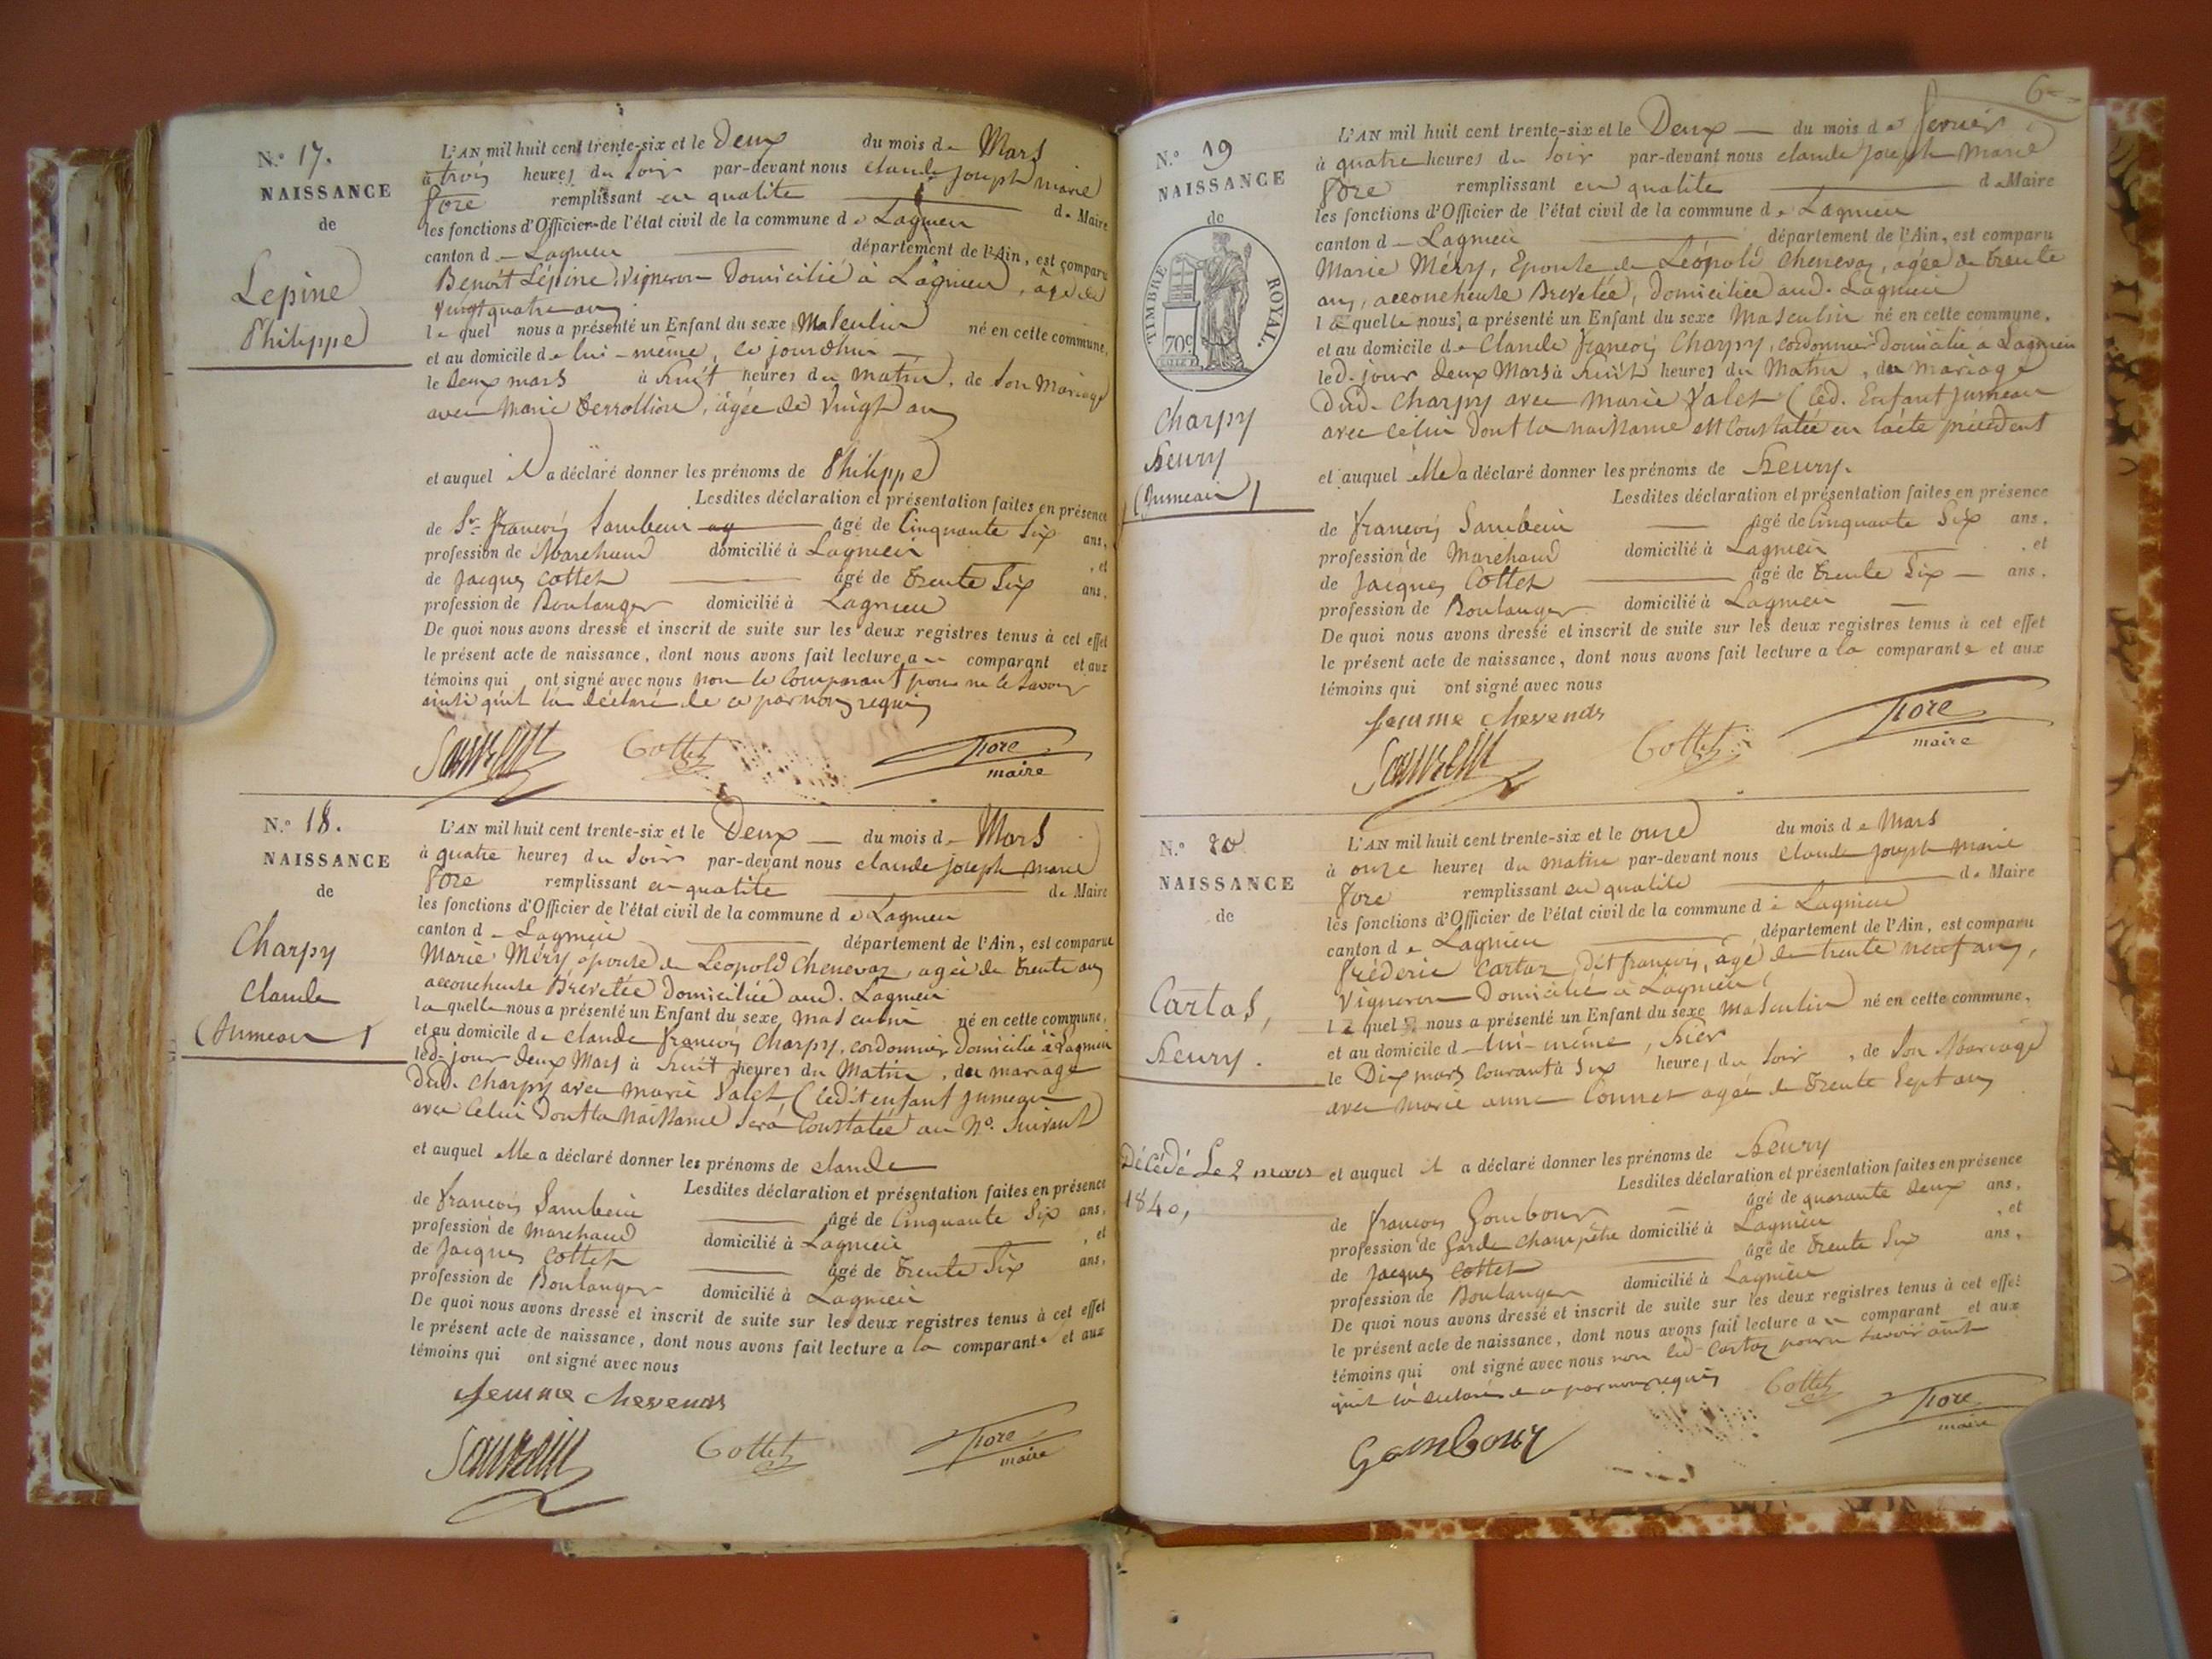 N.° 17.
NAISSANCE
de
Lepine
Philippe
L'AN mil huit cent trente-six et le Deux du mois de Mars
à trois heures du Soir par-devant nous Claude Joseph marie
Fore remplissant en qualité de Maire
les fonctions d'Officier de l'état civil de la commune de Lagnieu
canton de Lagnieu département de l'Ain, est comparu
Benoit Lépine, Vigneron Domicilié à Lagnieu, âgé de
vingt quatre ans
lequel nous a présenté un Enfant du sexe Masculin né en cette commune,
et au domicile de lui-même, ce jourdhui
le deux mars à huit heures du matin, de son Mariage
avec Marie , âgée de vingt ans
et auquel il a déclaré donner les prénoms de Philippe
Lesdites déclaration et présentation faites en présence
de Sr. françois Sambein âgé de Cinquante Six ans,
profession de Marchand domicilié à Lagnieu, et
de Jacques Cottet âgé de trente Six ans,
profession de Boulanger domicilié à Lagnieu
De quoi nous avons dressé et inscrit de suite sur les deux registres tenus à cet effet
le présent acte de naissance, dont nous avons fait lecture au comparant et aux
témoins qui ont signé avec nous non le Comparant pour ne le Savoir
ainsi qu'il la déclaré de ce par nous requis
Cottet
Fore
maire
N.° 18.
NAISSANCE
de
Charpy
Claude
(Jumeau)
L'AN mil huit cent trente-six et le Deux du mois de Mars
à quatre heures du Soir par-devant nous Claude Joseph marie
Fore remplissant en qualité de Maire
les fonctions d'Officier de l'état civil de la commune de Lagnieu
canton de Lagnieu département de l'Ain, est comparue
Marie Méry épouse de Léopold Chenevaz, agée de trente ans
accoucheuse Brevetée Domiciliée aud. Lagnieu
laquelle nous a présenté un Enfant du sexe masculin né en cette commune,
et au domicile de Claude françois Charpy, cordonnier Domicilié à Lagnieu
led. jour deux Mars à huit heures du Matin, du mariage
dud. Charpy avec Marie Valet (ledit enfant Jumeau
avec Celui dont la Naissance sera Constatée au N.° Suivant
et auquel elle a déclaré donner les prénoms de Claude
Lesdites déclaration et présentation faites en présence
de françois Sambein âgé de Cinquante Six ans,
profession de Marchand domicilié à Lagnieu, et
de Jacques Cottet âgé de trente Six ans,
profession de Boulanger domicilié à Lagnieu
De quoi nous avons dressé et inscrit de suite sur les deux registres tenus à cet effet
le présent acte de naissance, dont nous avons fait lecture a la comparante et aux
témoins qui ont signé avec nous
femme
Cottet
Fore
maire
6
N.° 19
NAISSANCE
de
TIMBRE ROYAL.
70c
Charpy
Henry
(Jumeau)
L'AN mil huit cent trente-six et le Deux du mois de fevrier
à quatre heures du Soir par-devant nous Claude Joseph Marie
Fore remplissant en qualité de Maire
les fonctions d'Officier de l'état civil de la commune de Lagnieu
canton de Lagnieu département de l'Ain, est comparu
Marie Méry, Epouse de Léopold Chenevaz, agée de trente
ans, accoucheuse Brevetée, Domiciliée aud. Lagnieu
laquelle nous a présenté un Enfant du sexe Masculin né en cette commune,
et au domicile de Claude françois Charpy, cordonnier Domicilié à Lagnieu
led. jour deux Mars à huit heures du Matin, du mariage
Dud. Charpy avec Marie Valet (led. Enfant Jumeau
avec celui dont la naissance est Constatée en l'acte précédent
et auquel elle a déclaré donner les prénoms de Henry.
Lesdites déclaration et présentation faites en présence
de françois Sambein âgé de Cinquante Six ans,
profession de Marchand domicilié à Lagnieu, et
de Jacques Cottet âgé de trente Six ans,
profession de Boulanger domicilié à Lagnieu
De quoi nous avons dressé et inscrit de suite sur les deux registres tenus à cet effet
le présent acte de naissance, dont nous avons fait lecture a la comparante et aux
témoins qui ont signé avec nous
femme
Cottet
Fore
maire
N.° 20
NAISSANCE
de
Cartas,
Henry.
Décédé Le 2 mars
1840,
L'AN mil huit cent trente-six et le onze du mois de Mars
à onze heures du matin par-devant nous Claude Joseph Marie
Fore remplissant en qualité de Maire
les fonctions d'Officier de l'état civil de la commune de Lagnieu
canton de Lagnieu département de l'Ain, est comparu
Fréderic Cartaz, Dit françois, âgé de trente neuf ans,
Vigneron Domicilié à Lagnieu
lequel nous a présenté un Enfant du sexe Masculin né en cette commune,
et au domicile de lui-même, hier
le Dix mars Courant à Six heures du Soir, de Son Mariage
avec Marie anne Connet agée de trente Sept ans
et auquel il a déclaré donner les prénoms de Henry
Lesdites déclaration et présentation faites en présence
de françois Gombour âgé de quarante deux ans,
profession de Garde Champêtre domicilié à Lagnieu, et
de Jacques Cottet âgé de trente Six ans,
profession de Boulanger domicilié à Lagnieu
De quoi nous avons dressé et inscrit de suite sur les deux registres tenus à cet effet
le présent acte de naissance, dont nous avons fait lecture au comparant et aux
témoins qui ont signé avec nous non led. Cartaz pour ne savoir ainsi
qu'il la déclaré de ce par nous requis
Cottet
Fore
maire